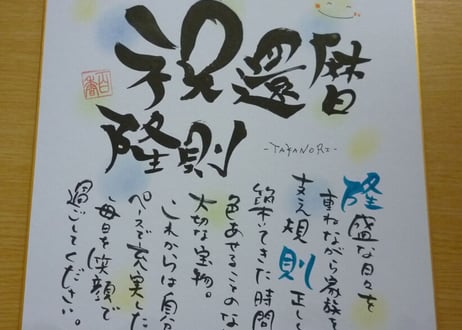 祝還暦
隆則
-TAKANORI-
隆盛な日々を
重ねながら家族を
支え規則正し
築いてきた時間
色あせることのな
大切な宝物。
これからは自分
ペースで充実した
毎日を笑顔で
過ごしてください。